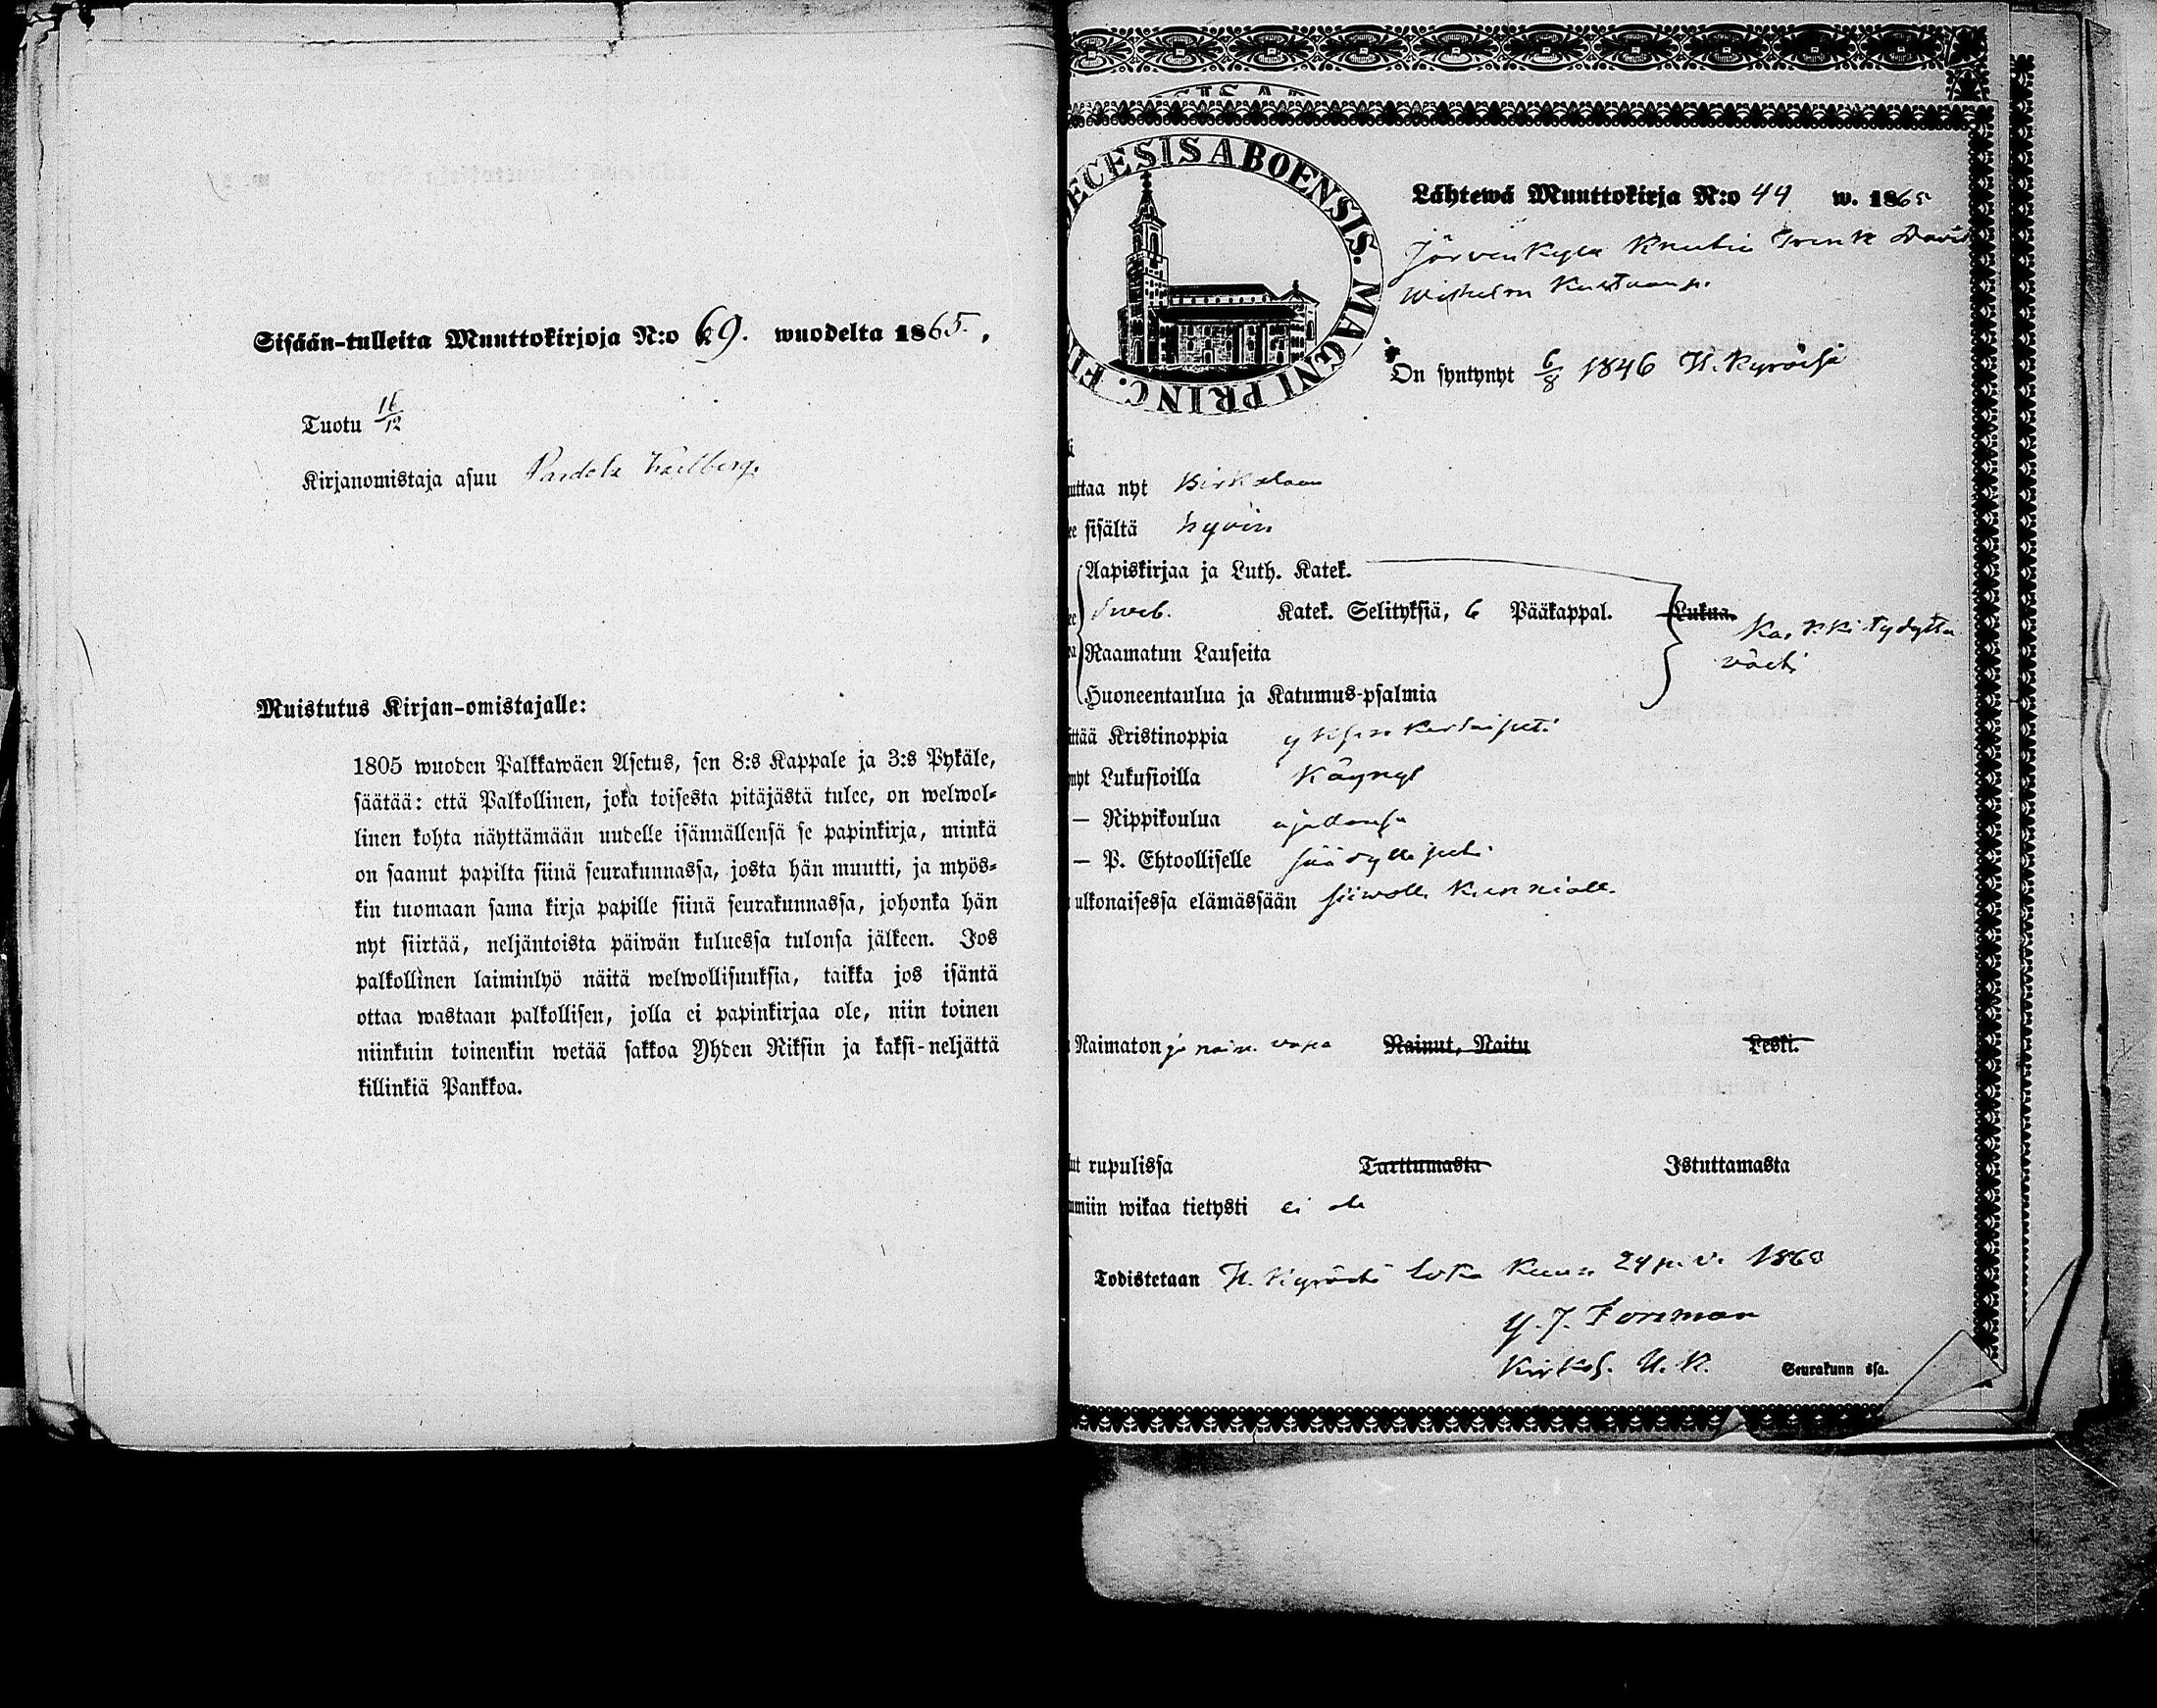 Sisään-tulleita Muuttokirjoja N:o 69. wuodelta 1865.
Tuotu 16/12
Kirjanomistaja asuu
Muistutus Kirjan-omistajalle:
1805 wuoden Palkkawäen Asetus, sen 8:s Kappale ja 3:s Pykäle,
säätää: että Palkollinen, joka toisesta pitäjästä tulee, on welwol-
linen kohta näyttämään uudelle isännällensä se papinkirja, minkä
on saanut papilta siinä seurakunnassa, josta hän muutti, ja myös-
kin tuomaan sama kirja papille siinä seurakunnassa, johonka hän
nyt siirtää, neljäntoista päiwän kuluessa tulonsa jälkeen. Jos
palkollinen laiminlyö näitä welwollisuuksia, taikka jos isäntä
ottaa wastaan palkollisen, jolla ei papinkirjaa ole, niin toinen
niinkuin toinenkin wetää sakkoa Yhden Riksin ja kaksi-neljättä
killinkiä Pankkoa.
ECESIS ABOENSIS. MAGNI PRINC. FI
Lähtewä Muuttokirja N:o 44 w. 1865
Järvenkylä Knuutin Trenk David
Wilhelm Kustaanp.
On syntynyt 6/8 1846 H. Kyrössä
uttaa nyt Birkalaan
sisältä hyvin
Aapiskirjaa ja Luth. Katek.
Sveb. Katek. Selityksiä, 6 Pääkappal. Lukua. Kaikki tydyttä
västi
Raamatun Lauseita
Huoneentaulua ja Katumus-psalmia
ttää Kristinoppia yksinkertaisesti
nyt Lukusioilla Käynyt
— Rippikoulua ajallansa
— P. Ehtoolliselle säädyllisesti
ulkonaisessa elämässään siivolla kunnialla
Naimaton ja naim. vapa Nainut, Naitu Leski.
ut rupulissa Tarttumasta Istuttamasta
mmiin wikaa tietysti ei ole
Todistetaan H. Kyröstä Loka kuun 24 p. v. 1865
G. J. Forsman
Kirkoh. H. K. Seurakunn ssa.